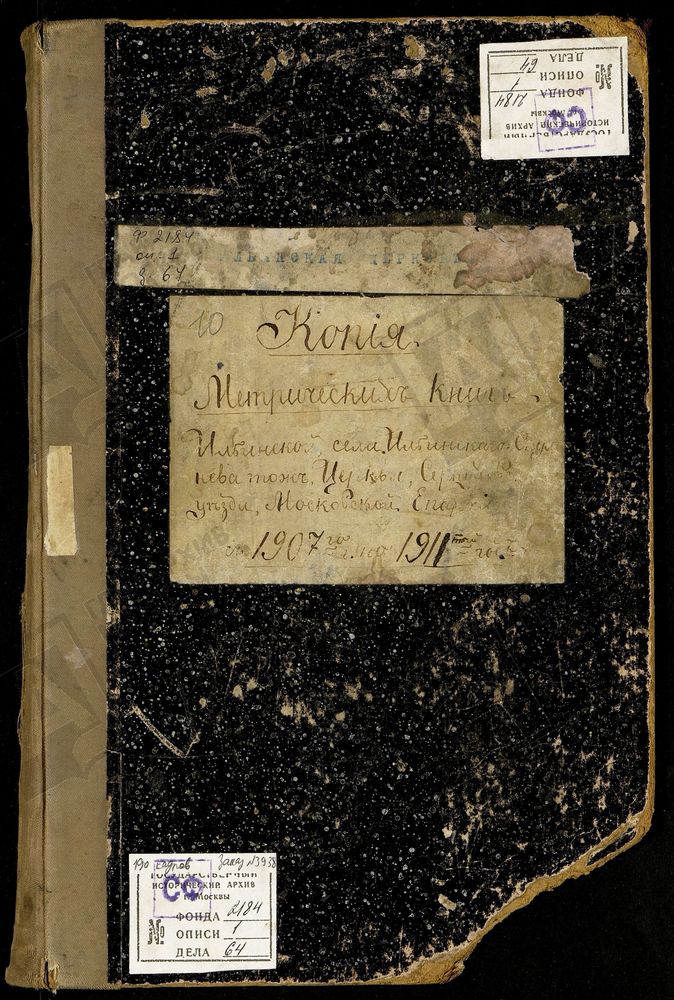 №
ГОСУДАРСТВЕННЫЙ
ИСТОРИЧЕСКИЙ АРХИВ
г. Москвы
СФ
ФОНДА 2184
ОПИСИ 1
ДЕЛА 64
Ф 2184
оп. 1
д. 64
ИЛЬИНСКАЯ ЦЕРКОВЬ
10
Копія.
Метрическихъ книгъ
Ильинской, села Ильинскаго
тожъ, Церкви,
уѣзда, Московской Епархіи
съ 1907 го по 1911 годъ
190 кадров Заказ №3938
ГОСУДАРСТВЕННЫЙ
ИСТОРИЧЕСКИЙ АРХИВ
г. Москвы
СФ
ФОНДА 2184
№ ОПИСИ 1
ДЕЛА 64